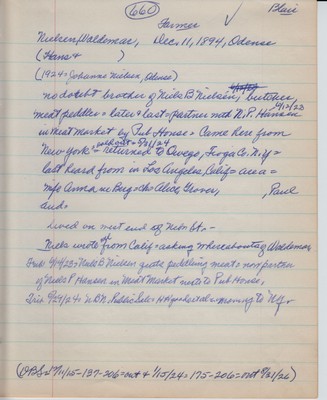 (660)
Blair
Farmer
Nielsen, Waldemar, Dec. 11, 1894, Odense
(Hans &        )
(1924 = Johanne Nielsen, Odense)
no doubt brother of Niels B Nielsen, butcher,
meat peddler = later & last = partner nat N. P. Hansen 9/12/23
in Meat Market by Pub House = Came here from
New York = without = 5/21/24 returned to Owego, Tioga Co. N.Y =
last heard from in Los Angeles, Calif = area =
mfe Anna = Berg = chs Alice, Grover, Paul
and =
lived on west end of Nebr St. =
Niels wrote from Calif = asking whereabouts of Waldemar
Niels B Nielsen quits peddling meat = now partner
of Niels P Hansen in Meat Market next to Pub House,
Public Sale = moving to N.Y.
(OBS = 7/11/15 - 137 - 206 = out & 1/15/24 = 175 - 206 = out 9/21/26)